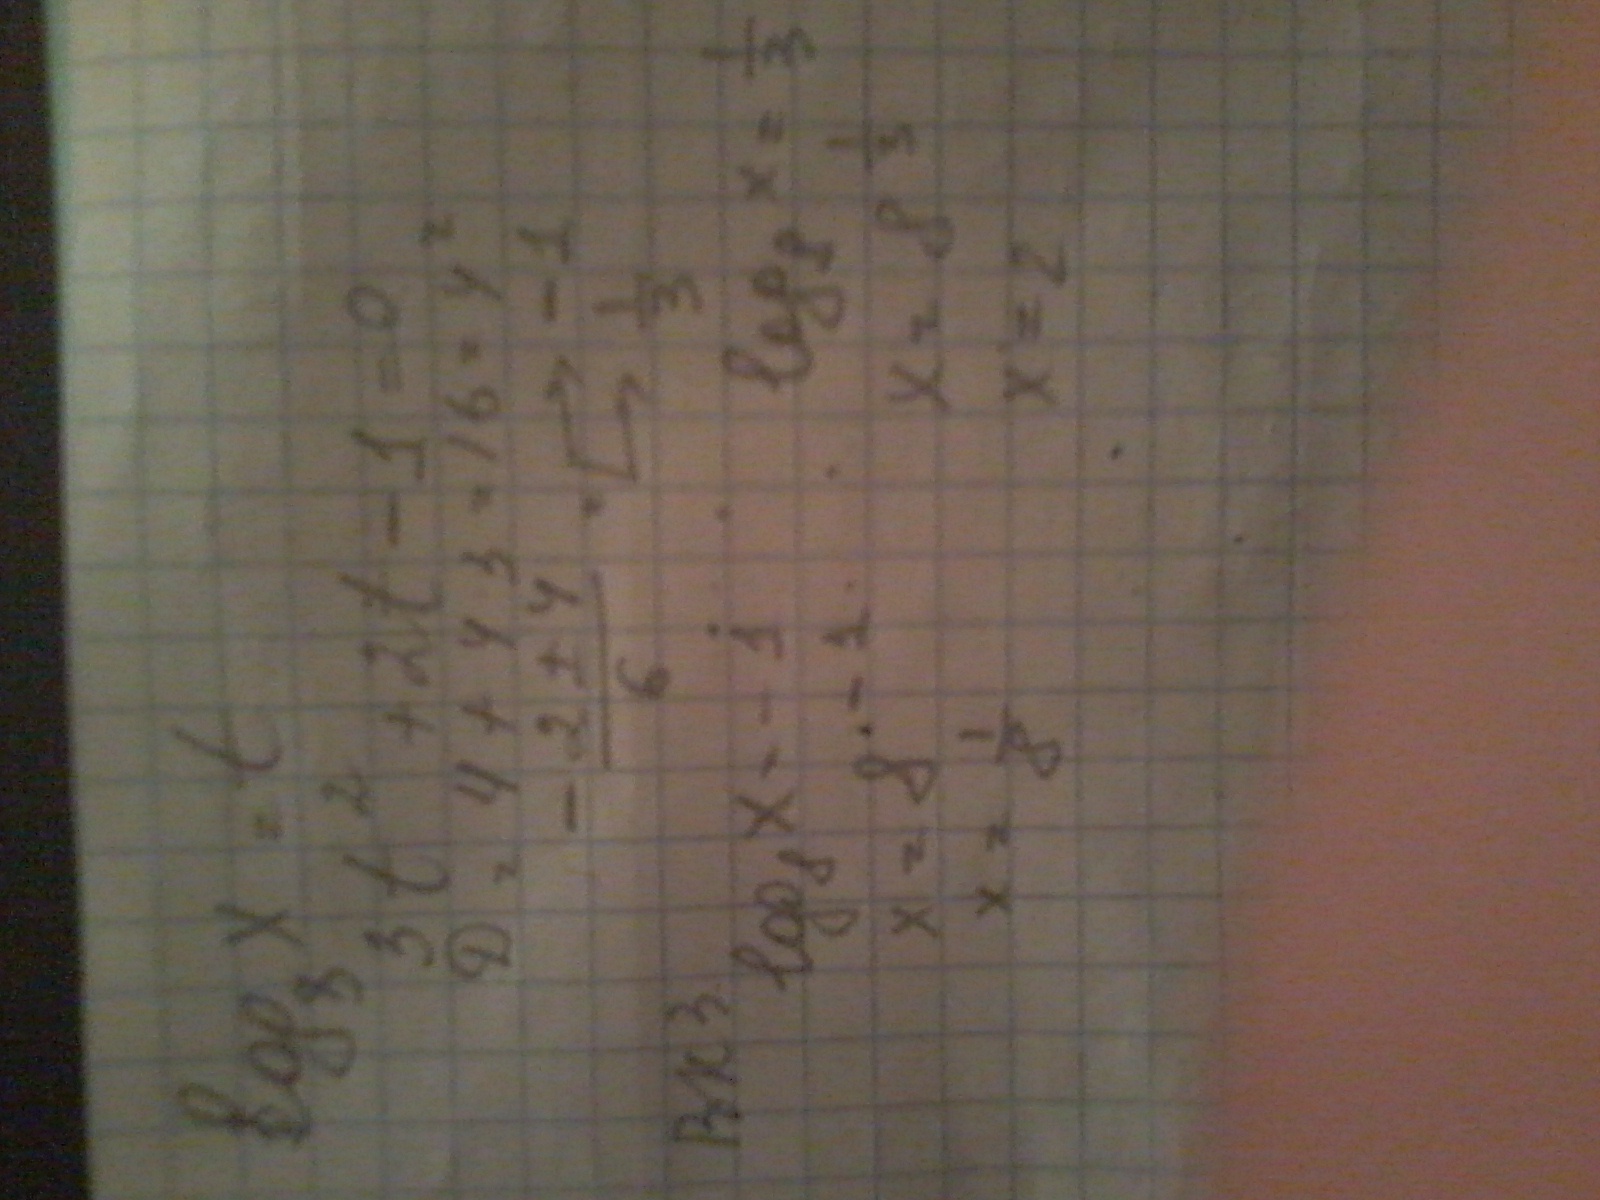 log₈ x = t
3t² + 2t - 1 = 0
D = 4 + 4 · 3 = 16 = 4²
(-2 ± 4) / 6 = → -1
→ 1/3
log₈ x = -1
log₈ x = 1/3
x = 8⁻¹
x = 8^(1/3)
x = 1/8
x = 2